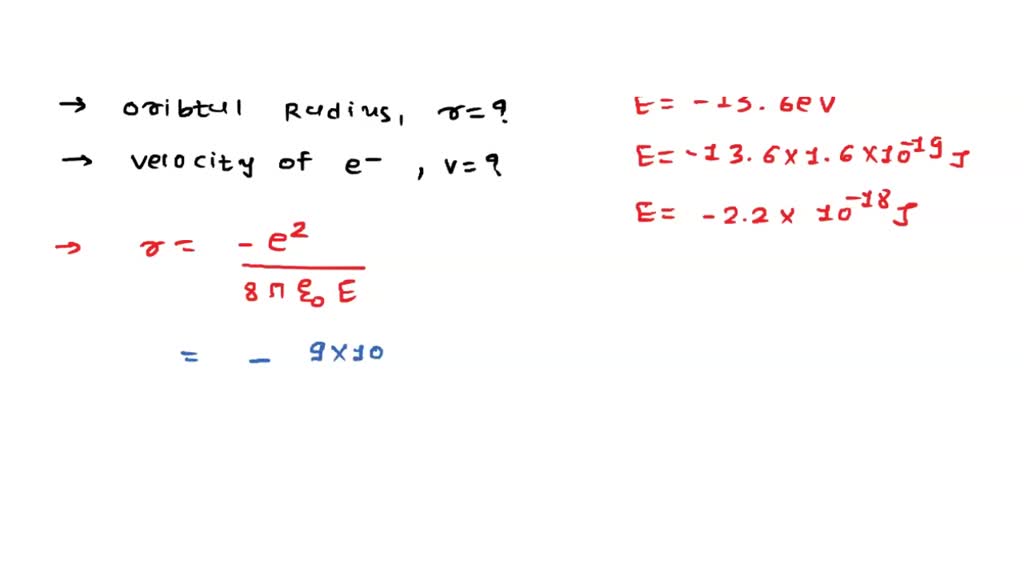 → oribtul Radius, r = ?
→ velocity of e⁻, v = ?
E = -13.6eV
E = -13.6 × 1.6 × 10⁻¹⁹ J
E = -2.2 × 10⁻¹⁸ J
→ r = - e² / 8 π ξ₀ E
= - 9×10